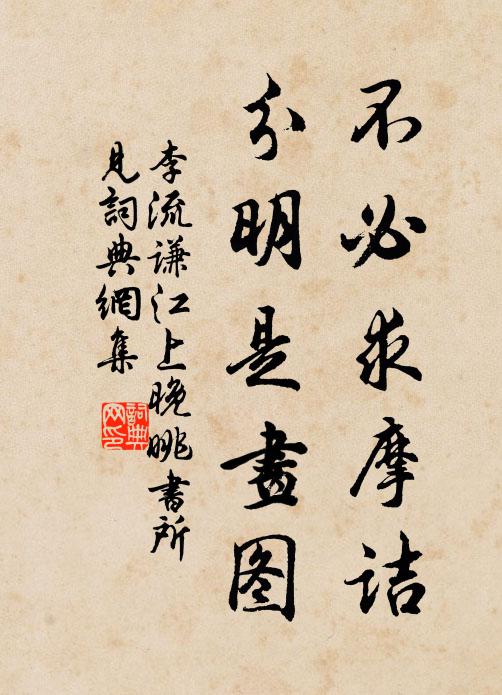 不必求摩诘
分明是畫图
李流谦江上晚眺書所
見詞典網集
詞典
网印